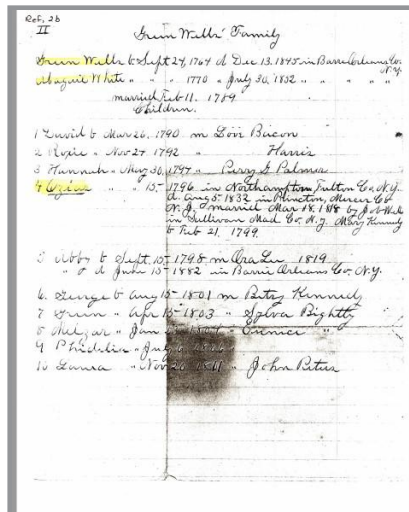 Ref. 2b
II
Green Wells' Family
Green Wells b Sept 24, 1764 d Dec 13. 1845 in Barre Orleans Co. N.Y.
Abagail White " " " 1770 " July 30, 1852 " " " "
married Feb 11. 1789
Children.
1 David b Mar 26, 1790 m Lovi Bacon
2 Roxie " Nov 27 1792 " Harris
3 Hannah " May 30, 1794 " Perry G Palmer
4 " " 15- 1796 in Northampton Fulton Co. N.Y.
d. Aug 5- 1832 in Princton, Mercer Co
N. J. married Mar 18, 1818 by
in Sullivan Mad Co. N.Y. Mary Kennedy
b Feb 21, 1799
5 Abby b Sept. 15, 1798 m Ora Lee 1819
" d June 15- 1882 in Barrie Orleans Co. N.Y.
6. George b Aug 15- 1801 m Betsy Kennedy
7 Green " Apr 15- 1803 " Sylva Bightly
8 Melzar " Jan " Eunice "
9 Phidelia " July 6
10 Laura " Nov 20 1811 " John Peters